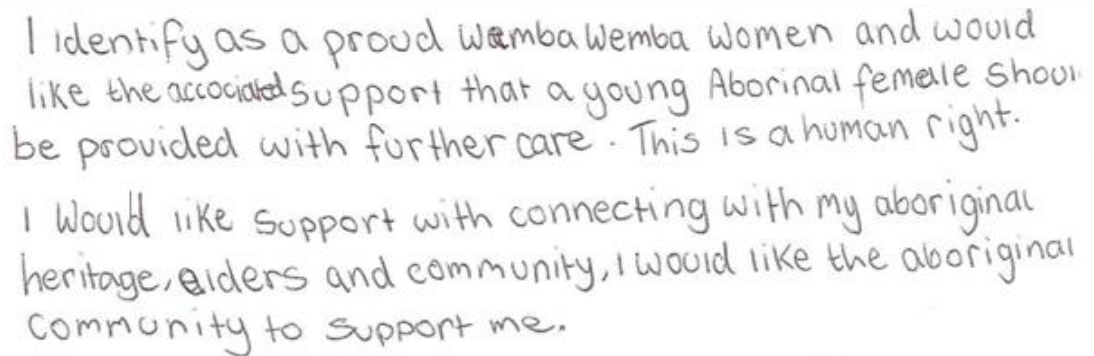 I identify as a proud Wamba Wemba Women and would
like the accociated support that a young Aborinal femelle shoul
be provided with further care. This is a human right.
I Would like Support with connecting with my aboriginal
heritage, elders and community, I would like the aboriginal
community to support me.